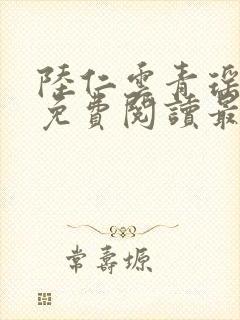 陸仁雲青瑤
免費閱讀最
常壽塬